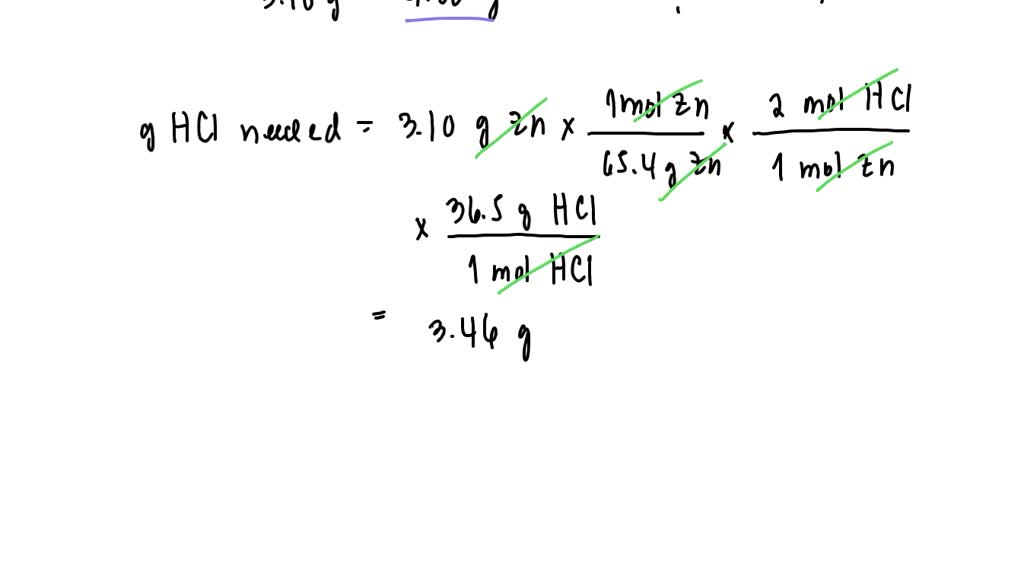 g HCl needed = 3.10 g Zn x 1 mol Zn / 65.4 g Zn x 2 mol HCl / 1 mol Zn
x 36.5 g HCl / 1 mol HCl
= 3.46 g